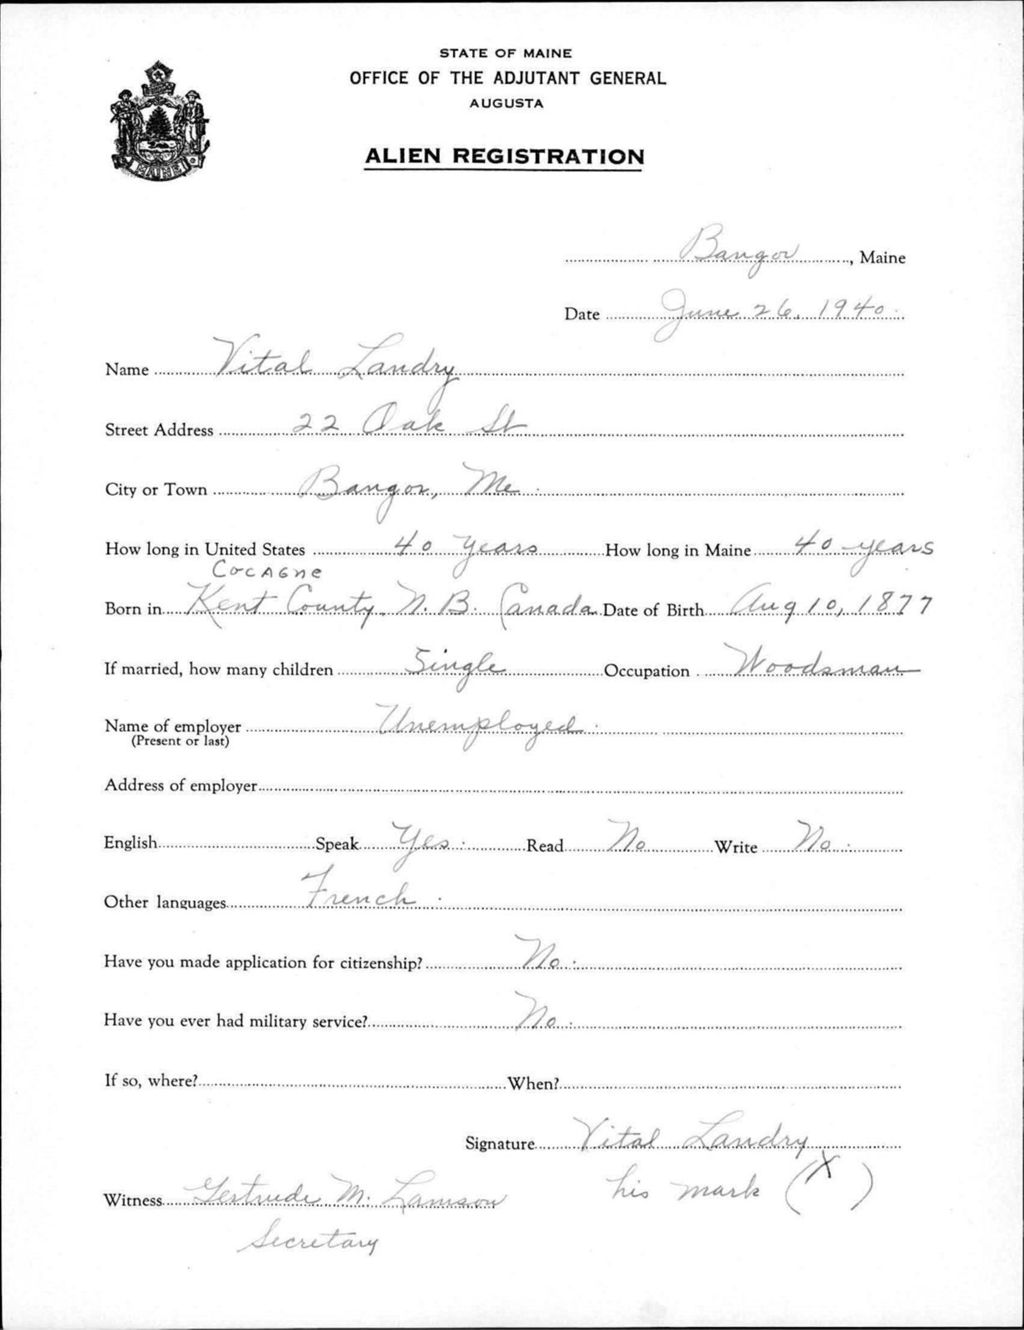 STATE OF MAINE
OFFICE OF THE ADJUTANT GENERAL
AUGUSTA
MAINE
ALIEN REGISTRATION
Bangor, Maine
Date June 26, 1940.
Name Vital Landry
Street Address 22 Oak St
City or Town Bangor, Me.
How long in United States 40 years How long in Maine 40 years
Cocagne
Born in Kent County. N. B. Canada Date of Birth Aug 10, 1877
If married, how many children Single Occupation Woodsman
Name of employer Unemployed.
(Present or last)
Address of employer
English Speak Yes. Read No Write No.
Other languages French.
Have you made application for citizenship? No.
Have you ever had military service? No.
If so, where? When?
Signature Vital Landry
Witness Gertrude M. Lamson his mark (X)
Secretary